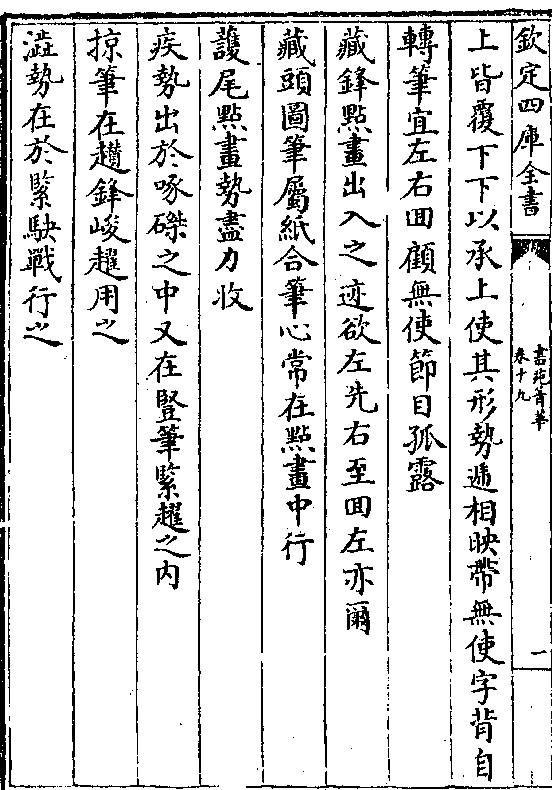 欽定四庫全書
書苑菁華
卷十九
一
上皆覆下下以承上使其形勢遞相映帶無使字背自
轉筆宜左右回顧無使節目孤露
藏鋒點畫出入之迹欲左先右至回左亦爾
藏頭圖筆屬紙合筆心常在點畫中行
護尾點畫勢盡力收
疾勢出於啄磔之中又在豎筆緊趯之内
掠筆在趲鋒峻趯用之
澁勢在於緊駃戰行之